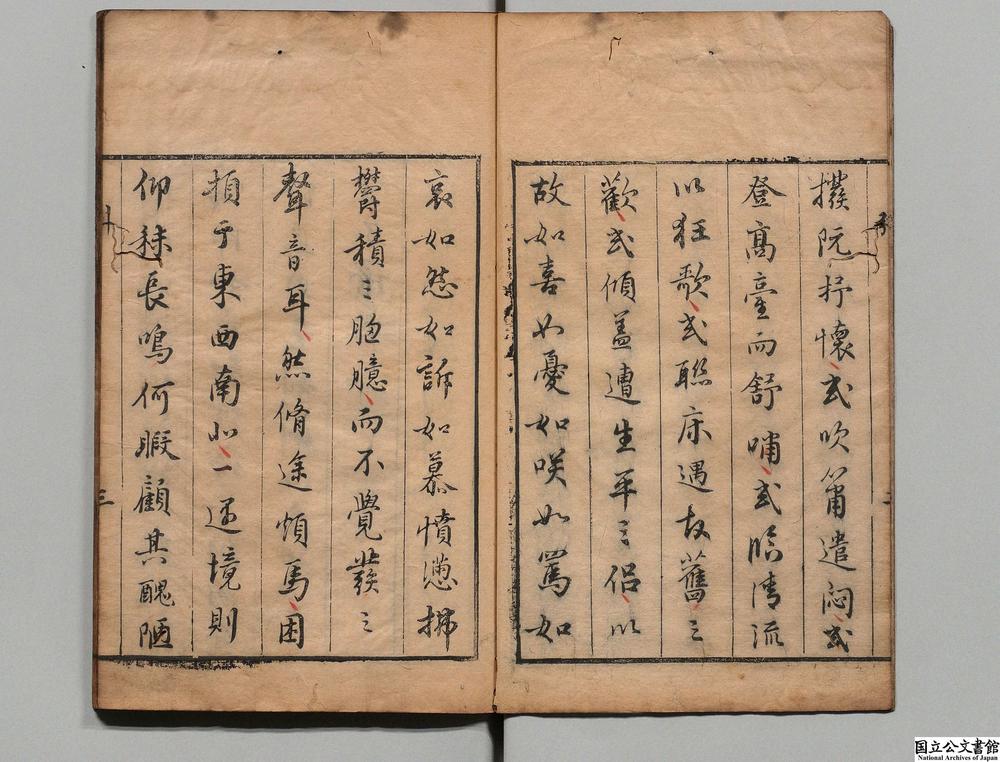 撥阮抒懷或吹簫遣悶或
登高臺而舒嘯或臨清流
以狂歌或聯床遇故舊之
歡或傾盖遭生平之侶以
故如喜如憂如咲如罵如
哀如愁如訴如慕憤懣拂
欎積之胸臆而不覺發之
聲音耳然脩途煩馬困
頓于東西南北一逆境則
仰秣長鳴何暇顧其醜陋
三
国立公文書館
National Archives of Japan